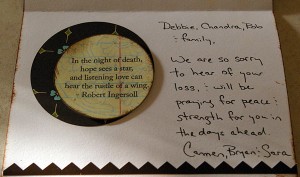 In the night of death,
hope sees a star,
and listening love can
hear the rustle of a wing.
- Robert Ingersoll
Debbie, Chandra, Bob
& family,
We are so sorry
to hear of your
loss. & will be
praying for peace &
strength for you in
the days ahead.
Carmen, Bryan & Sara